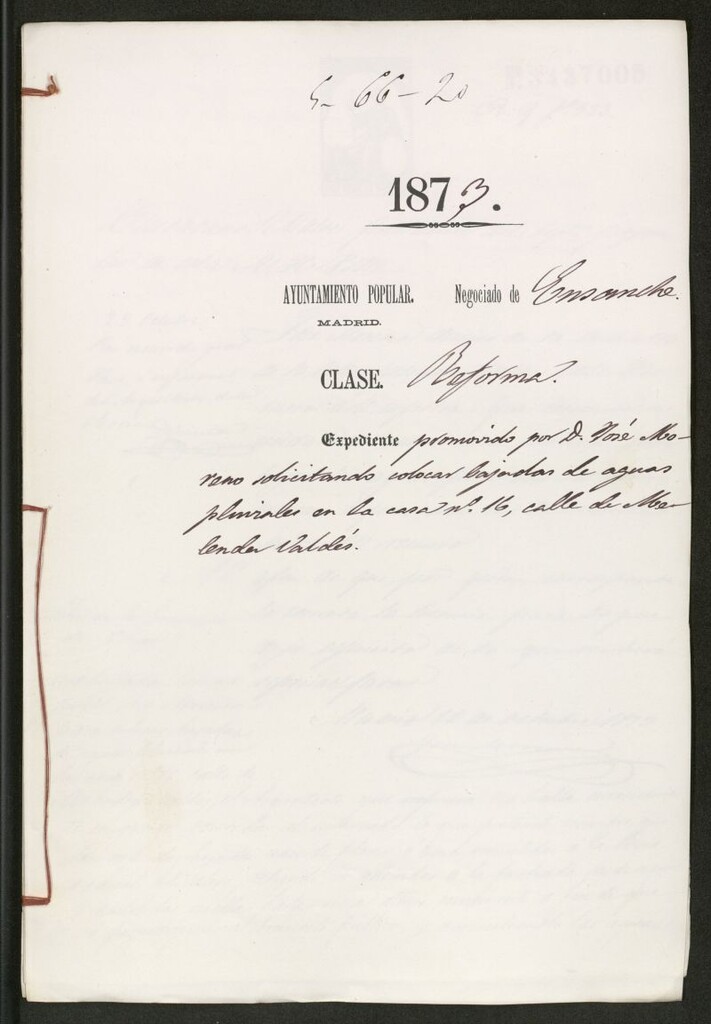 5-66-20
1873.
AYUNTAMIENTO POPULAR. Negociado de Ensanche.
MADRID.
CLASE. Reforma.
Expediente promovido por D. José Mo-
reno solicitando colocar bajadas de aguas
pluviales en la casa nº. 16, calle de Me-
lendez Valdés.